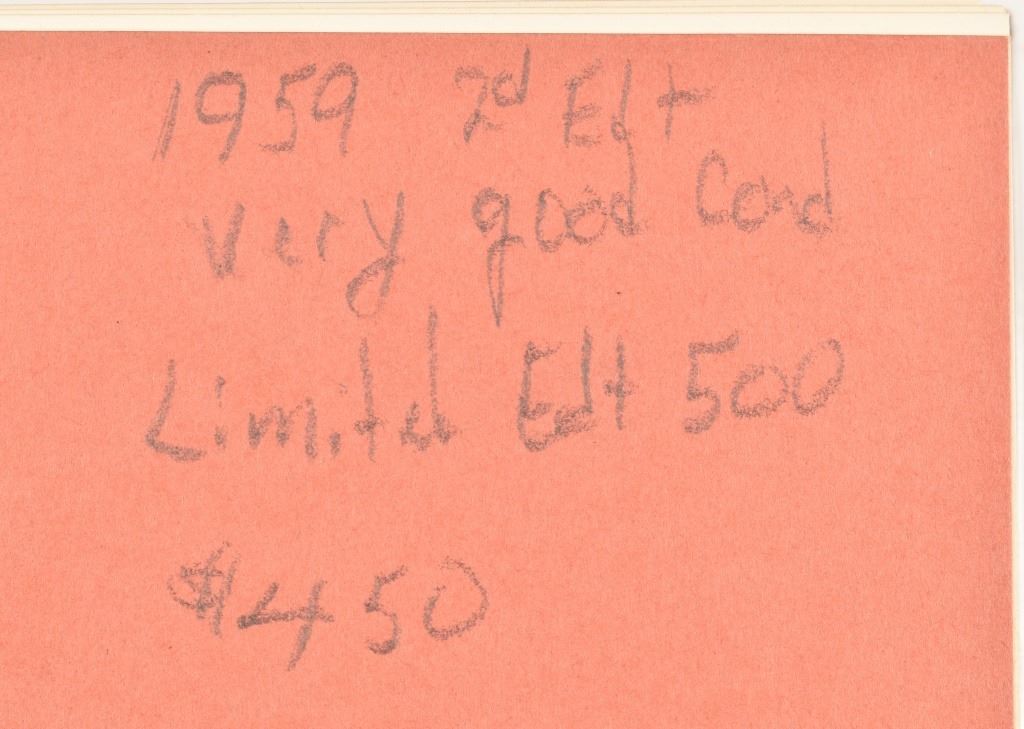 1959 2d Edt
very good Cond
Limited Edt 500
$450